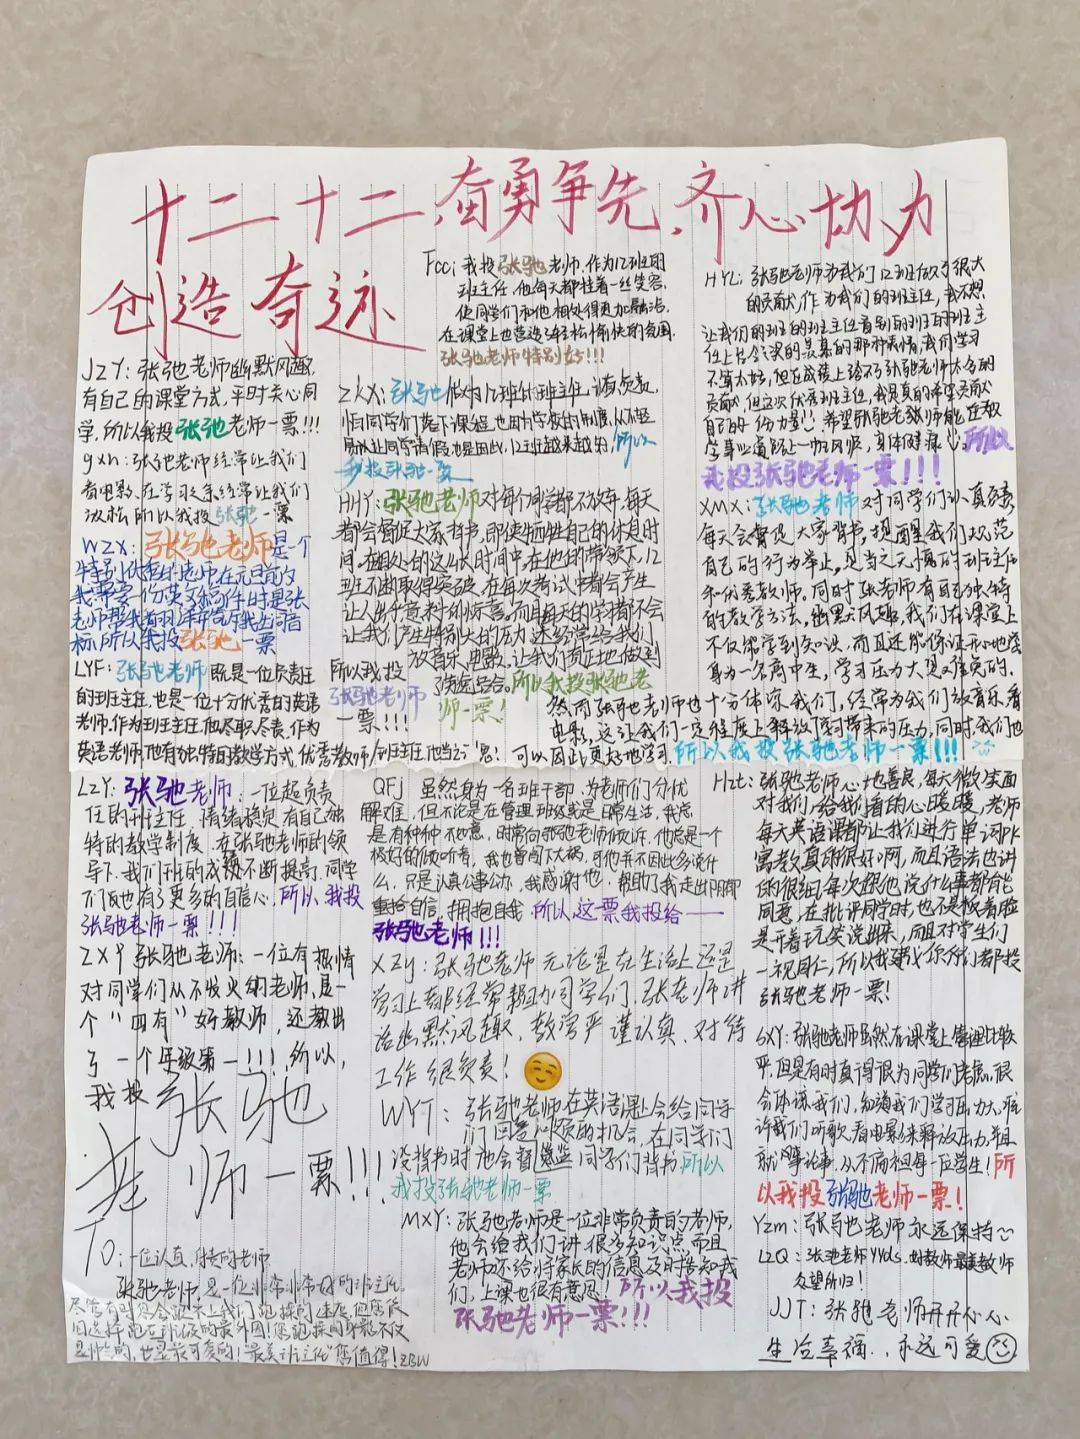 十二十二,奋勇争先,齐心协力
创造奇迹
JZY:张弛老师幽默风趣,
有自己的课堂方式,平时关心同
学,所以我投张弛老师一票!!!
gxn:张弛老师经常让我们
看电影,在学习之余经常让我们
放松 所以我投张弛一票
WZX:张弛老师是一个
LYF:张弛老师既是一位负责任
的班主任,也是一位十分优秀的英语
老师.作为班主任,他尽职尽责.作为
英语老师,他有独特的教学方式.优秀教师/班主任,他当之
Fcc:我投张弛老师.作为12班的
班主任.他每天都挂着一丝笑容.
使同学们和他相处得更加融洽.
在课堂上也营造了轻松愉快的氛围.
张弛老师特别好!!!
所以
我投张弛一票
HHY:张弛老师对每个同学都不放弃.每天
都会督促大家背书,即使牺牲自己的休息时
间.在相处的这么长时间中,在他的带领下,12
班不断取得突破.在每次考试中都会产生
让人出乎意料的惊喜.而且每天的学习都不会
让我们产生特别大的压力.还经常给我们
放音乐,电影.让我们真正地做到
了劳逸结合.所以我投张弛老
师一票!
所以我投
张弛老师
一票!!!
HYL:张弛老师为我们12班做了很大
的贡献,作为我们的班主任,我不想
让我们的班的班主任看到别的班的班主
所以
我投张弛老师一票!!!
XMX:张弛老师对同学们认真负责,
每天会督促大家背书,提醒我们规范
自己的行为举止,是当之无愧的班主任
和优秀教师.同时张老师有自己独特
的教学方法,幽默风趣,我们在课堂上
不仅能学到知识,而且还能保证开心地
身为一名高中生,学习压力大是难免的.
然而张弛老师也十分体谅我们,经常为我们放音乐,看
电影,这让我们一定程度上释放了学习带来的压力,同时,我们也
可以因此更好地学习.所以我投张弛老师一票!!!
LZY:张弛老师:一位超负责
任的班主任.情绪稳定,有自己独
特的教学制度.在张弛老师的领
导下.我们班的成绩不断提高.同学
们也有了更多的自信心.所以,我投
张弛老师一票!!!!
ZXY 张弛老师:一位有热情
对同学们从不发火的老师,是一
个“四有”好教师,还教出
了一个年级第一!!!,所以,
我投张弛
老师一票!!!
QFJ 虽然身为一名班干部,为老师们分忧
解难,但不论是在管理班级或是日常生活,我总
是有种种不如意,时常向张弛老师倾诉.他总是一个
极好的倾听者,我也曾闯下大祸,可他并不因此多说什
么,只是认真公事公办,我感谢他,帮助了我走出阴郁
重拾自信,拥抱自我.所以这票我投给——
张弛老师!!!
XZy:张弛老师无论是在生活上还是
学习上都经常帮助同学们.张老师讲
话幽默风趣,教学严谨认真,对待
工作很负责!
WYT:张弛老师在英语课上会给同学
们回答问题的机会,在同学们
没背书时他会督促同学们背书.所以
我投张弛老师一票
MXY:张弛老师是一位非常负责的老师,
他会给我们讲很多知识点,而且
老师还给将家长的信息及时告知我
们,上课也很有意思!所以我投
张弛老师一票!!!
Hzt:张弛老师心地善良,每天微笑面
对我们,给我们看的心暖暖,老师
每天英语课都让我们进行单词PK
寓教真的很好啊,而且语法也讲
的很细,每次跟他说什么事都能
同意,在批评同学时,也不是板着脸
是开着玩笑说出来,而且对学生们
一视同仁,所以我建议你们都投
张弛老师一票!
GXY:张弛老师虽然在课堂上管理比较
严,但是有时真得很为同学们考虑.很
会体谅我们,知道我们学习压力大,允
许我们听歌、看电影来释放压力,并且
就事论事.从不偏袒每一位学生!所
以我投张弛老师一票!
Yzm:张弛老师永远保持~
LZQ:张弛老师YYDS.
众望所归!
JJT:张弛老师开开心心
生活幸福..永远可爱
To:一位认真,负责的老师
张弛老师,是一位非常非常好的班主任.
“最美班主任”您值得!ZBW